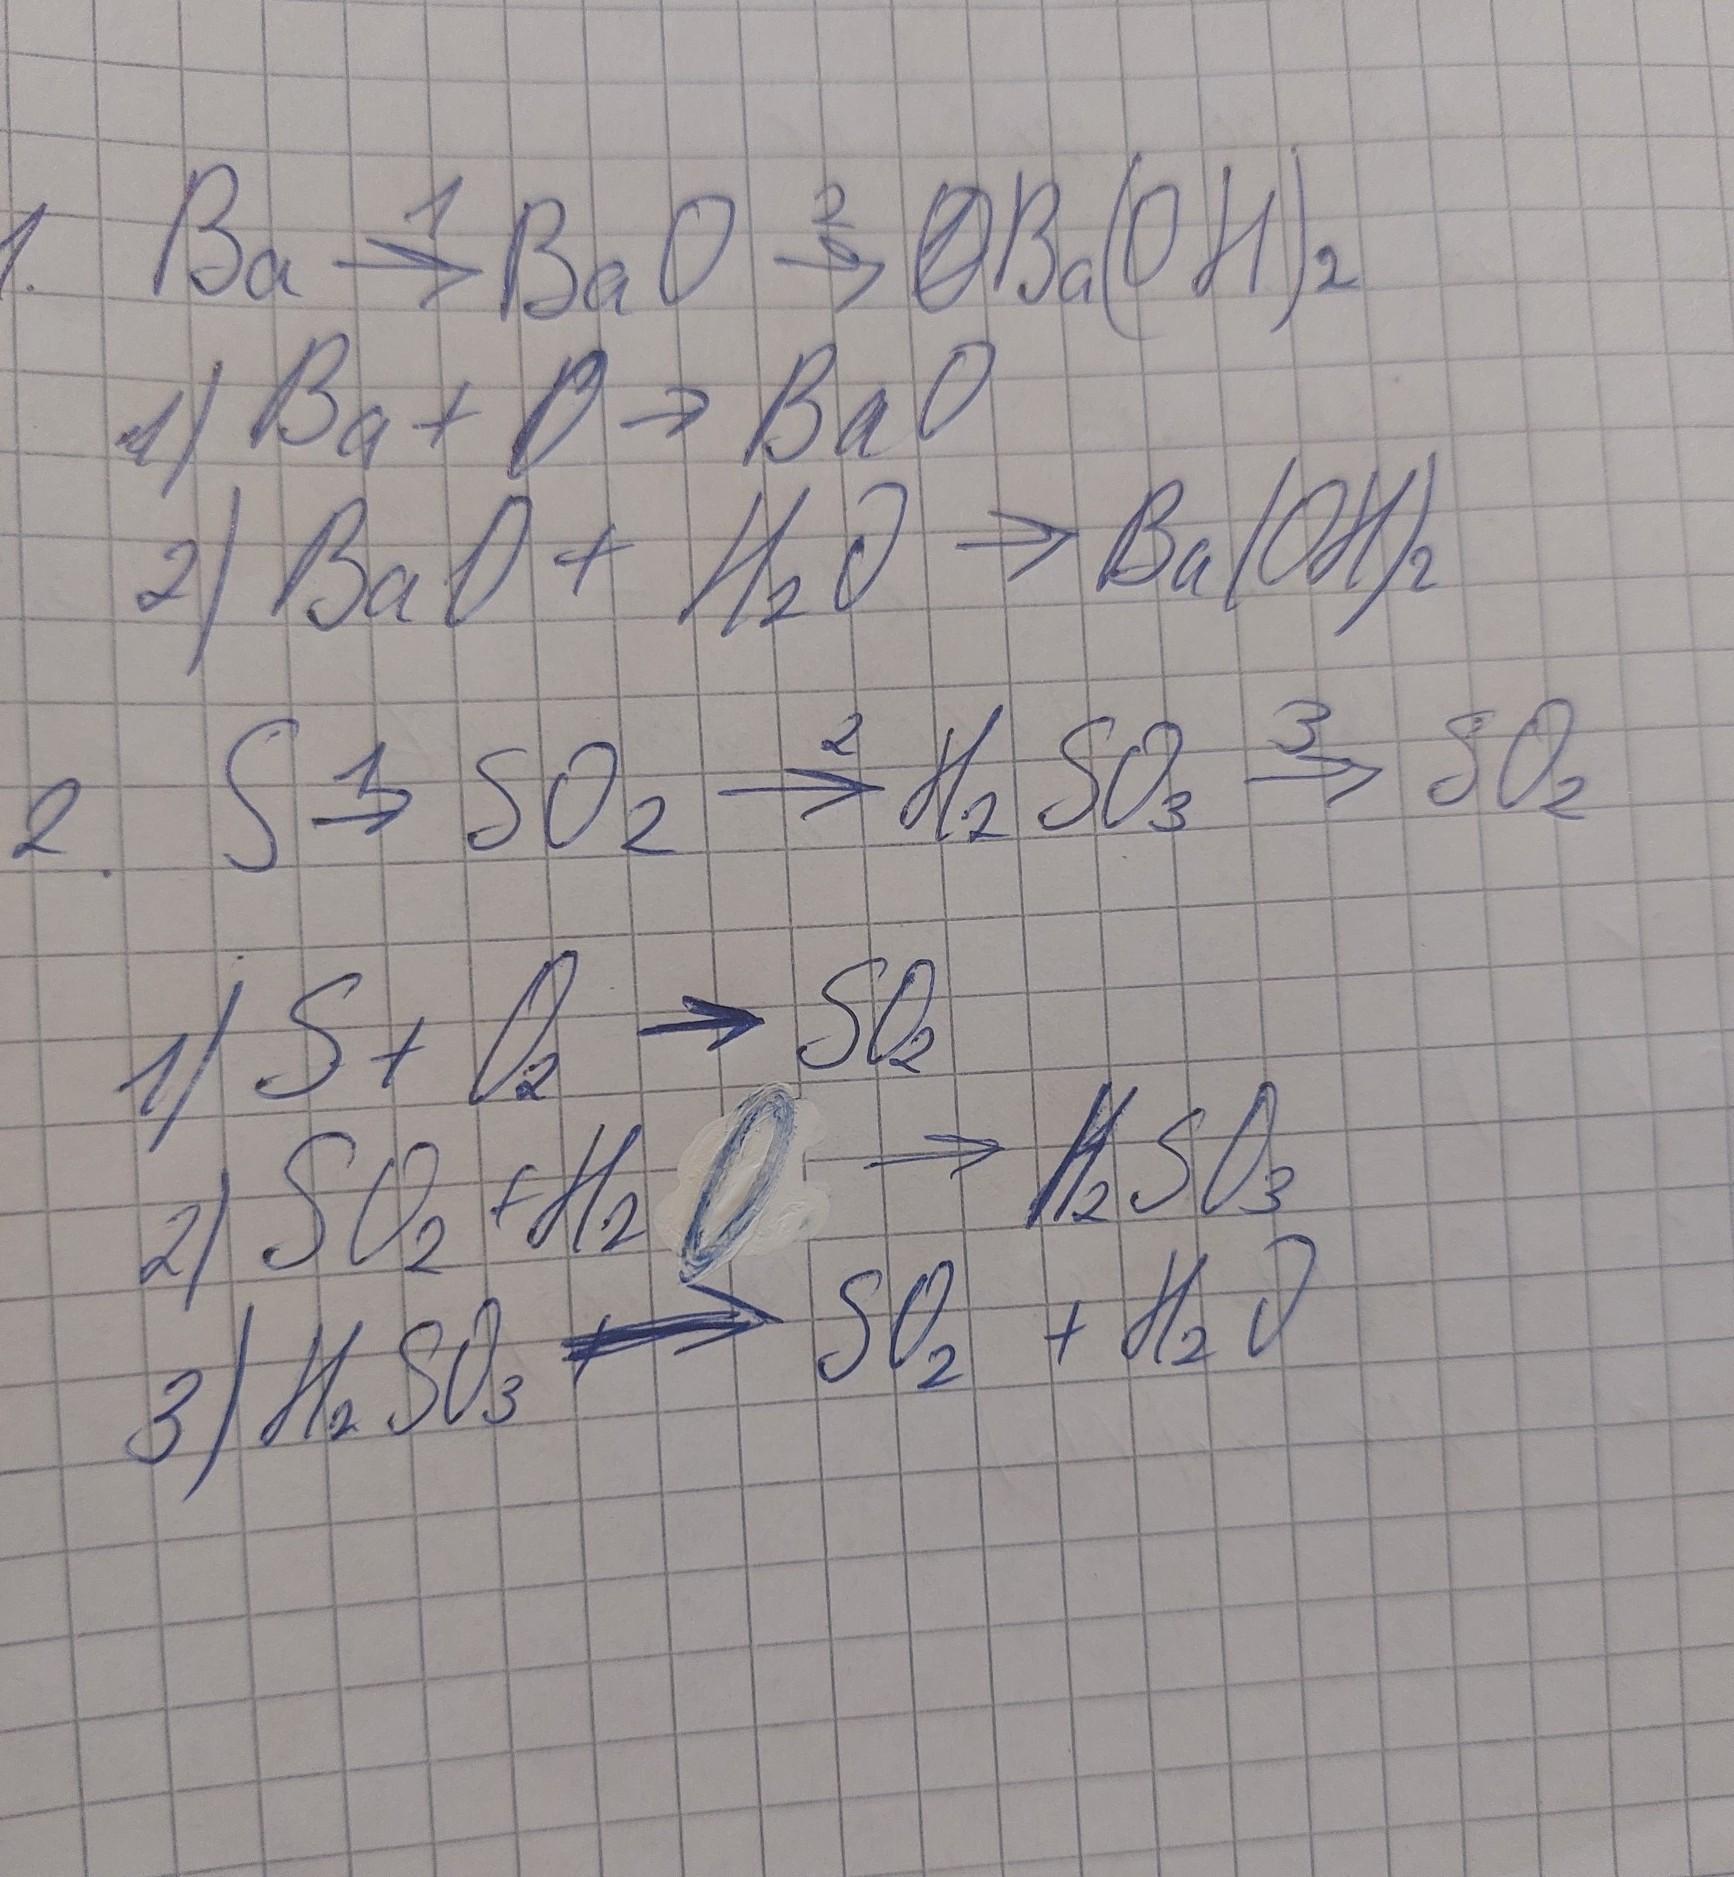 1. Ba →1 BaO →2 Ba(OH)₂
1) Ba + O → BaO
2) BaO + H₂O → Ba(OH)₂
2. S →1 SO₂ →2 H₂SO₃ →3 SO₂
1) S + O₂ → SO₂
2) SO₂ + H₂O → H₂SO₃
3) H₂SO₃ → SO₂ + H₂O